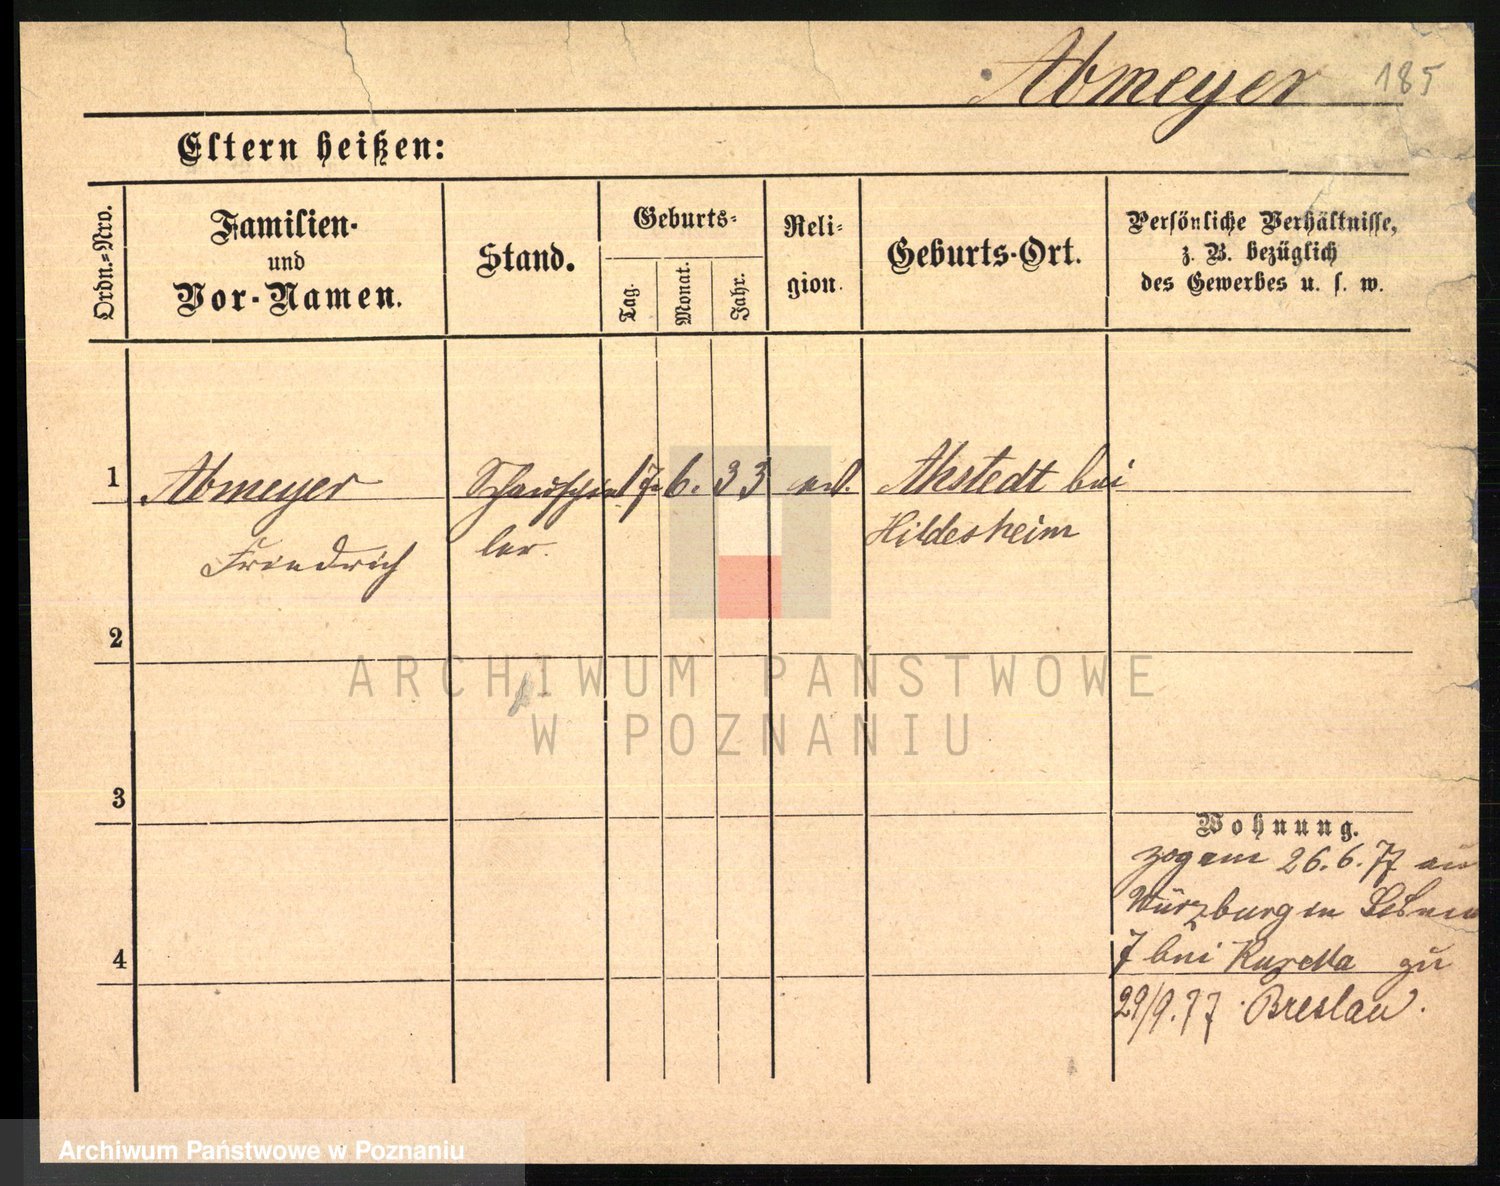 Abmeyer 185
Eltern heißen:
Ordn.=Nro.
Familien-
und
Vor-Namen.
Stand.
Geburts-
Tag.
Monat.
Jahr.
Reli-
gion.
Geburts-Ort.
Persönliche Verhältnisse,
z. B. bezüglich
des Gewerbes u. s. w.
1 Abmeyer Schauspie 17. 6. 33 Ahstedt bei
Friedrich ler. Hildesheim
2
ARCHIWUM PAŃSTWOWE
W POZNANIU
3
Wohnung.
zog am 26. 6. 77 au
Würzburg in
7 bei zu
4
29/9. 77 Breslau.
Archiwum Państwowe w Poznaniu